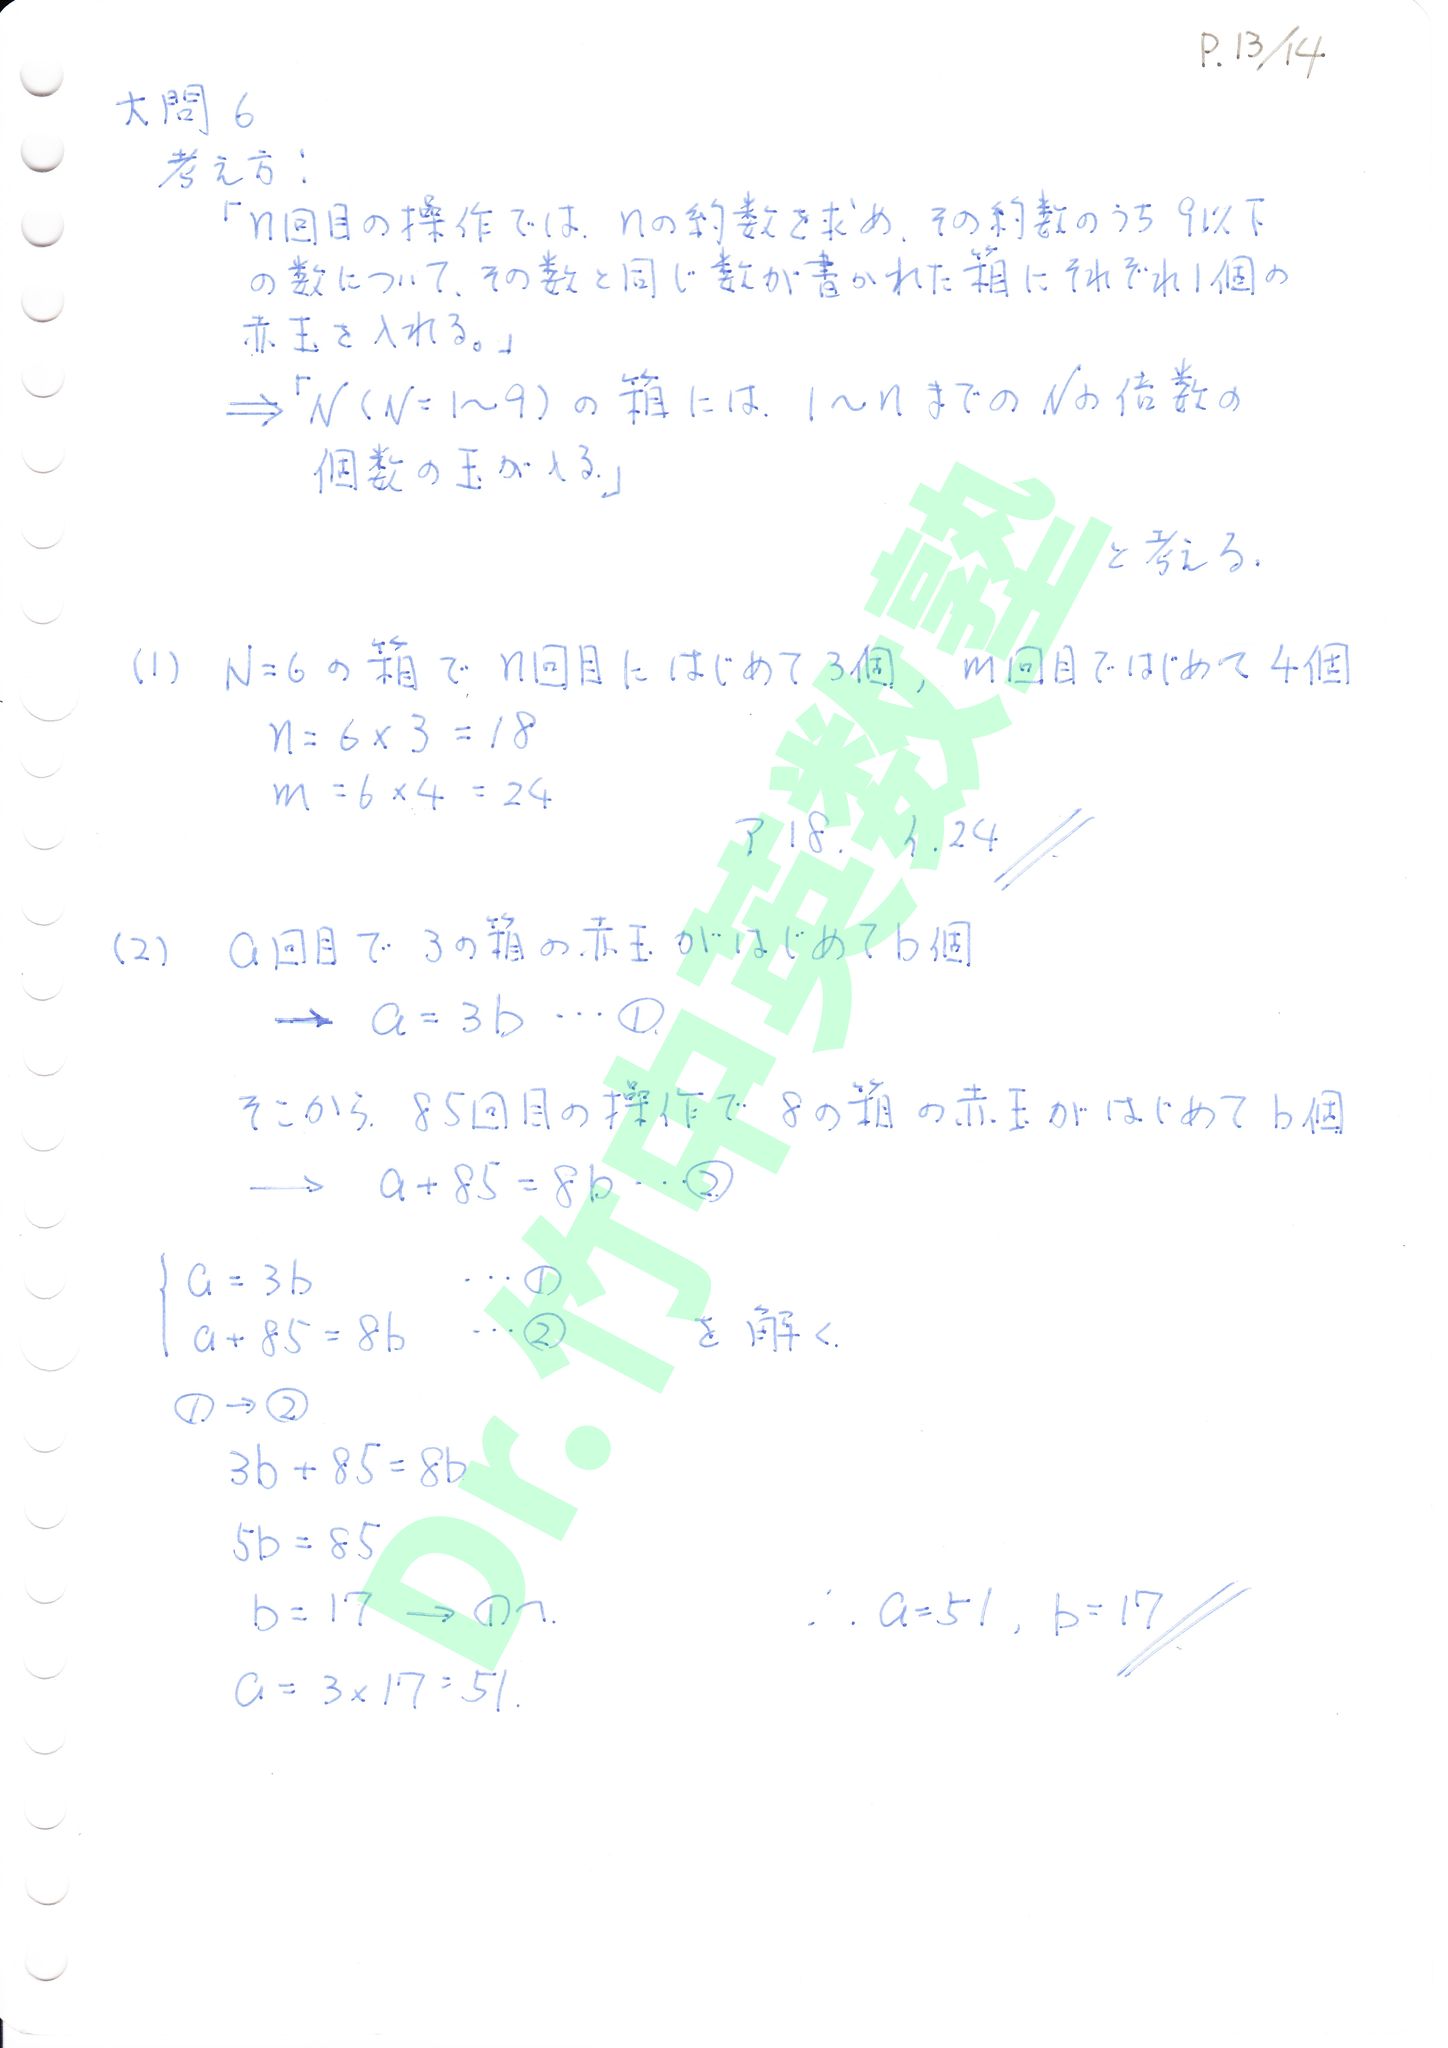 P.13/14
大問 6
考え方：
「n回目の操作では、nの約数を求め、その約数のうち 9以下
の数について、その数と同じ数が書かれた箱にそれぞれ1個の
赤玉を入れる。」
⇒「N(N=1～9)の箱には、1～nまでのNの倍数の
個数の玉が入る。」
と考える.
(1) N=6の箱でn回目にはじめて3個, m回目ではじめて4個
n=6×3=18
m=6×4=24
ア 18. イ.24
(2) a回目で 3の箱の赤玉がはじめてb個
→ a=3b …①
そこから、85回目の操作で 8の箱の赤玉がはじめてb個
→ a+85=8b …②
a=3b …①
a+85=8b …② を解く.
①→②
3b+85=8b
5b=85
b=17 →①へ.
∴ a=51, b=17
a=3×17=51.
Dr.竹中英数塾